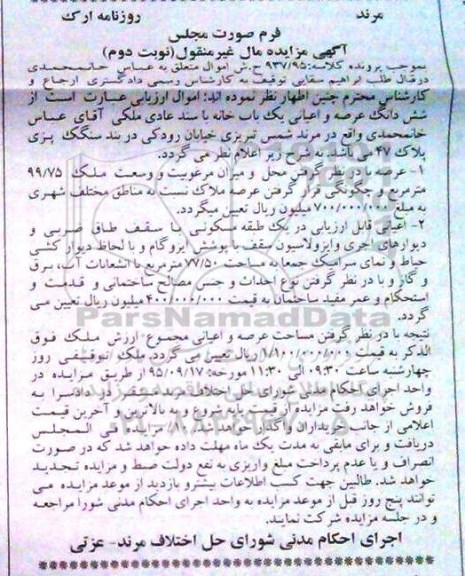 مرند روزنامه ارک
فرم صورت مجلس
آگهی مزایده مال غیرمنقول(نوبت دوم)
بموجب پرونده کلاسه:۹۳۷/۹۵ ح.ش اموال متعلق به عباس خانمحمدی
درقبال طلب ابراهیم سقایی توقیف به کارشناس رسمی دادگستری ارجاع و
کارشناس محترم چنین اظهار نظر نموده اند: اموال ارزیابی عبارت است از
شش دانگ عرصه و اعیانی یک باب خانه با سند عادی ملکی آقای عباس
خانمحمدی واقع در مرند شمس تبریزی خیابان رودکی در بند سنگک پزی
پلاک ۴۷ می باشد. به شرح زیر اعلام نظر می گردد.
۱- عرصه با در نظر گرفتن محل و میزان مرغوبیت و وسعت ملک ۹۹/۷۵
مترمربع و چگونگی قرار گرفتن عرصه ملاک نسبت به مناطق مختلف شهری
به مبلغ ۷۰۰/۰۰۰/۰۰۰ میلیون ریال تعیین میگردد.
۲- اعیانی قابل ارزیابی در یک طبقه مسکونی با سقف طاق ضربی و
دیوارهای آجری و ایزولاسیون سقف با پوشش ایزوگام و با لحاظ دیوار کشی
حیاط و نمای سرامیک جمعا به مساحت ۷۷/۵۰ مترمربع با انشعابات آب، برق
و گاز و با در نظر گرفتن نوع احداث و جنس مصالح ساختمانی و قدمت و
استحکام و عمر مفید ساختمان به قیمت ۴۰۰/۰۰۰/۰۰۰ میلیون ریال تعیین می
گردد.
نتیجه با در نظر گرفتن مساحت عرصه و اعیانی مجموع ارزش ملک فوق
الذکر به قیمت ۱/۱۰۰/۰۰۰/۰۰۰ ریال تعیین می گردد. ملک توقیفی روز
چهارشنبه ساعت ۰۹:۳۰ الی ۱۱:۳۰ مورخه: ۹۵/۰۹/۱۷ از طریق مزایده در
واحد اجرای احکام مدنی شورای حل اختلاف مرند مستقر در دادسرا به
فروش خواهد رفت مزایده از قیمت پایه شروع و به بالاترین و آخرین قیمت
اعلامی از جانب خریداران واگذار خواهد شد. ۱۰٪ مزایده فی المجلس
دریافت و برای مابقی به مدت یک ماه مهلت داده خواهد شد که در صورت
انصراف و یا عدم پرداخت مبلغ واریزی به نفع دولت ضبط و مزایده تجدید
خواهد شد. طالبین جهت کسب اطلاعات بیشتر و بازدید از موعد مزایده می
توانند پنج روز قبل از موعد مزایده به واحد اجرای احکام مدنی شورا مراجعه
و در جلسه مزایده شرکت نمایند.
اجرای احکام مدنی شورای حل اختلاف مرند- عزتی
ParsNamadData